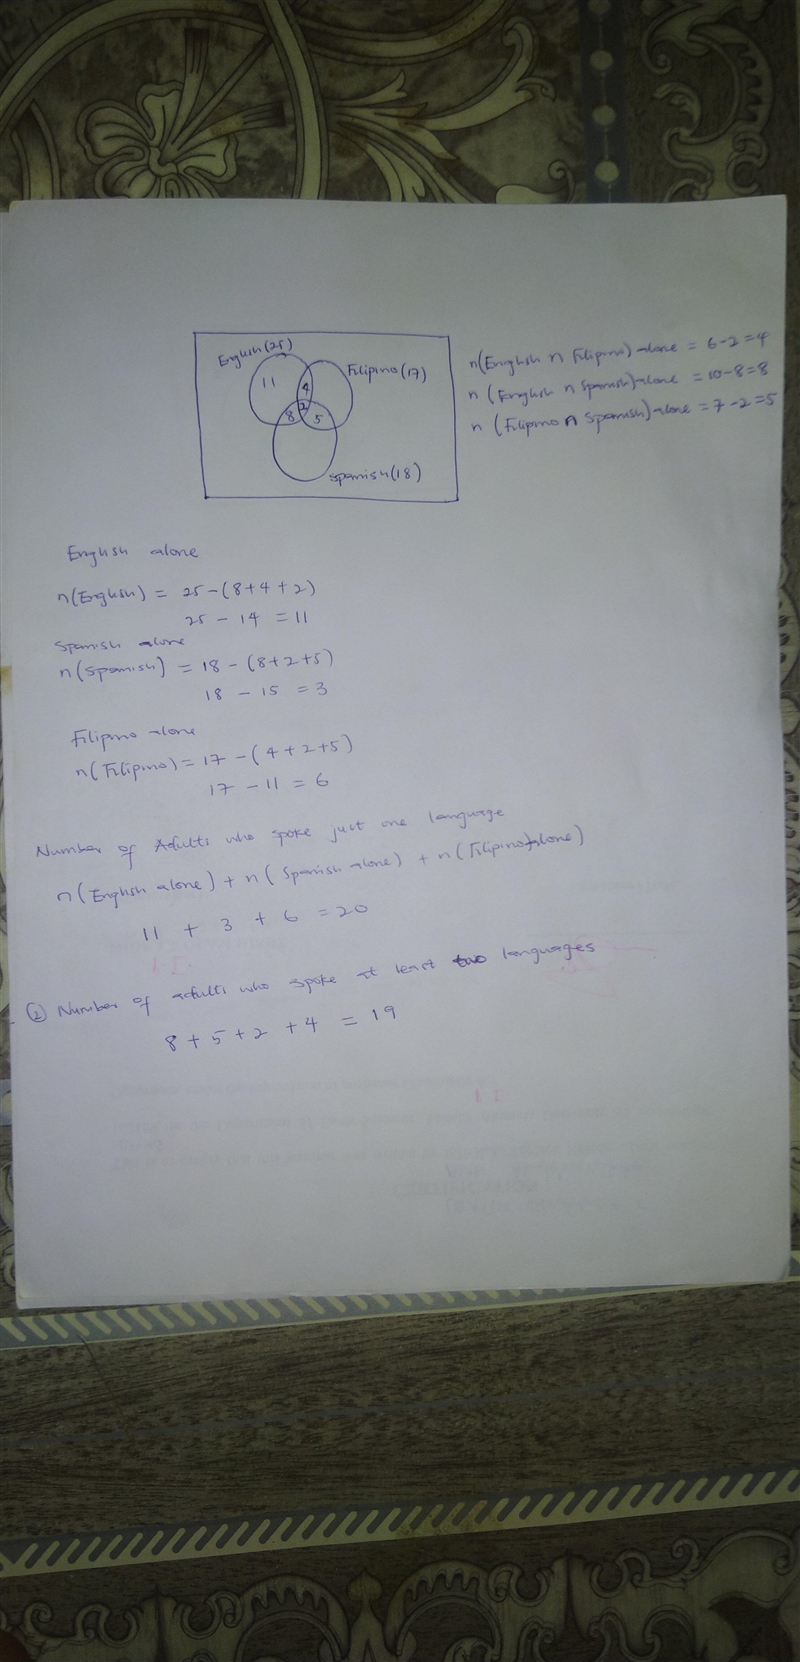 English(25)
Filipino(17)
11
4
2
8
5
Spanish(18)
n(English n Filipino) alone = 6-2=4
n (English n Spanish)alone = 10-8=8
n (Filipino n Spanish)alone = 7-2=5
English alone
n(English) = 25-(8+4+2)
25 - 14 = 11
Spanish alone
n(Spanish) = 18 - (8+2+5)
18 - 15 = 3
Filipino alone
n(Filipino) = 17 - (4+2+5)
17 - 11 = 6
Number of Adults who spoke just one language
n(English alone) + n( Spanish alone) + n(Filipino alone)
11 + 3 + 6 = 20
(2) Number of adults who spoke at least two languages
8 + 5 + 2 + 4 = 19